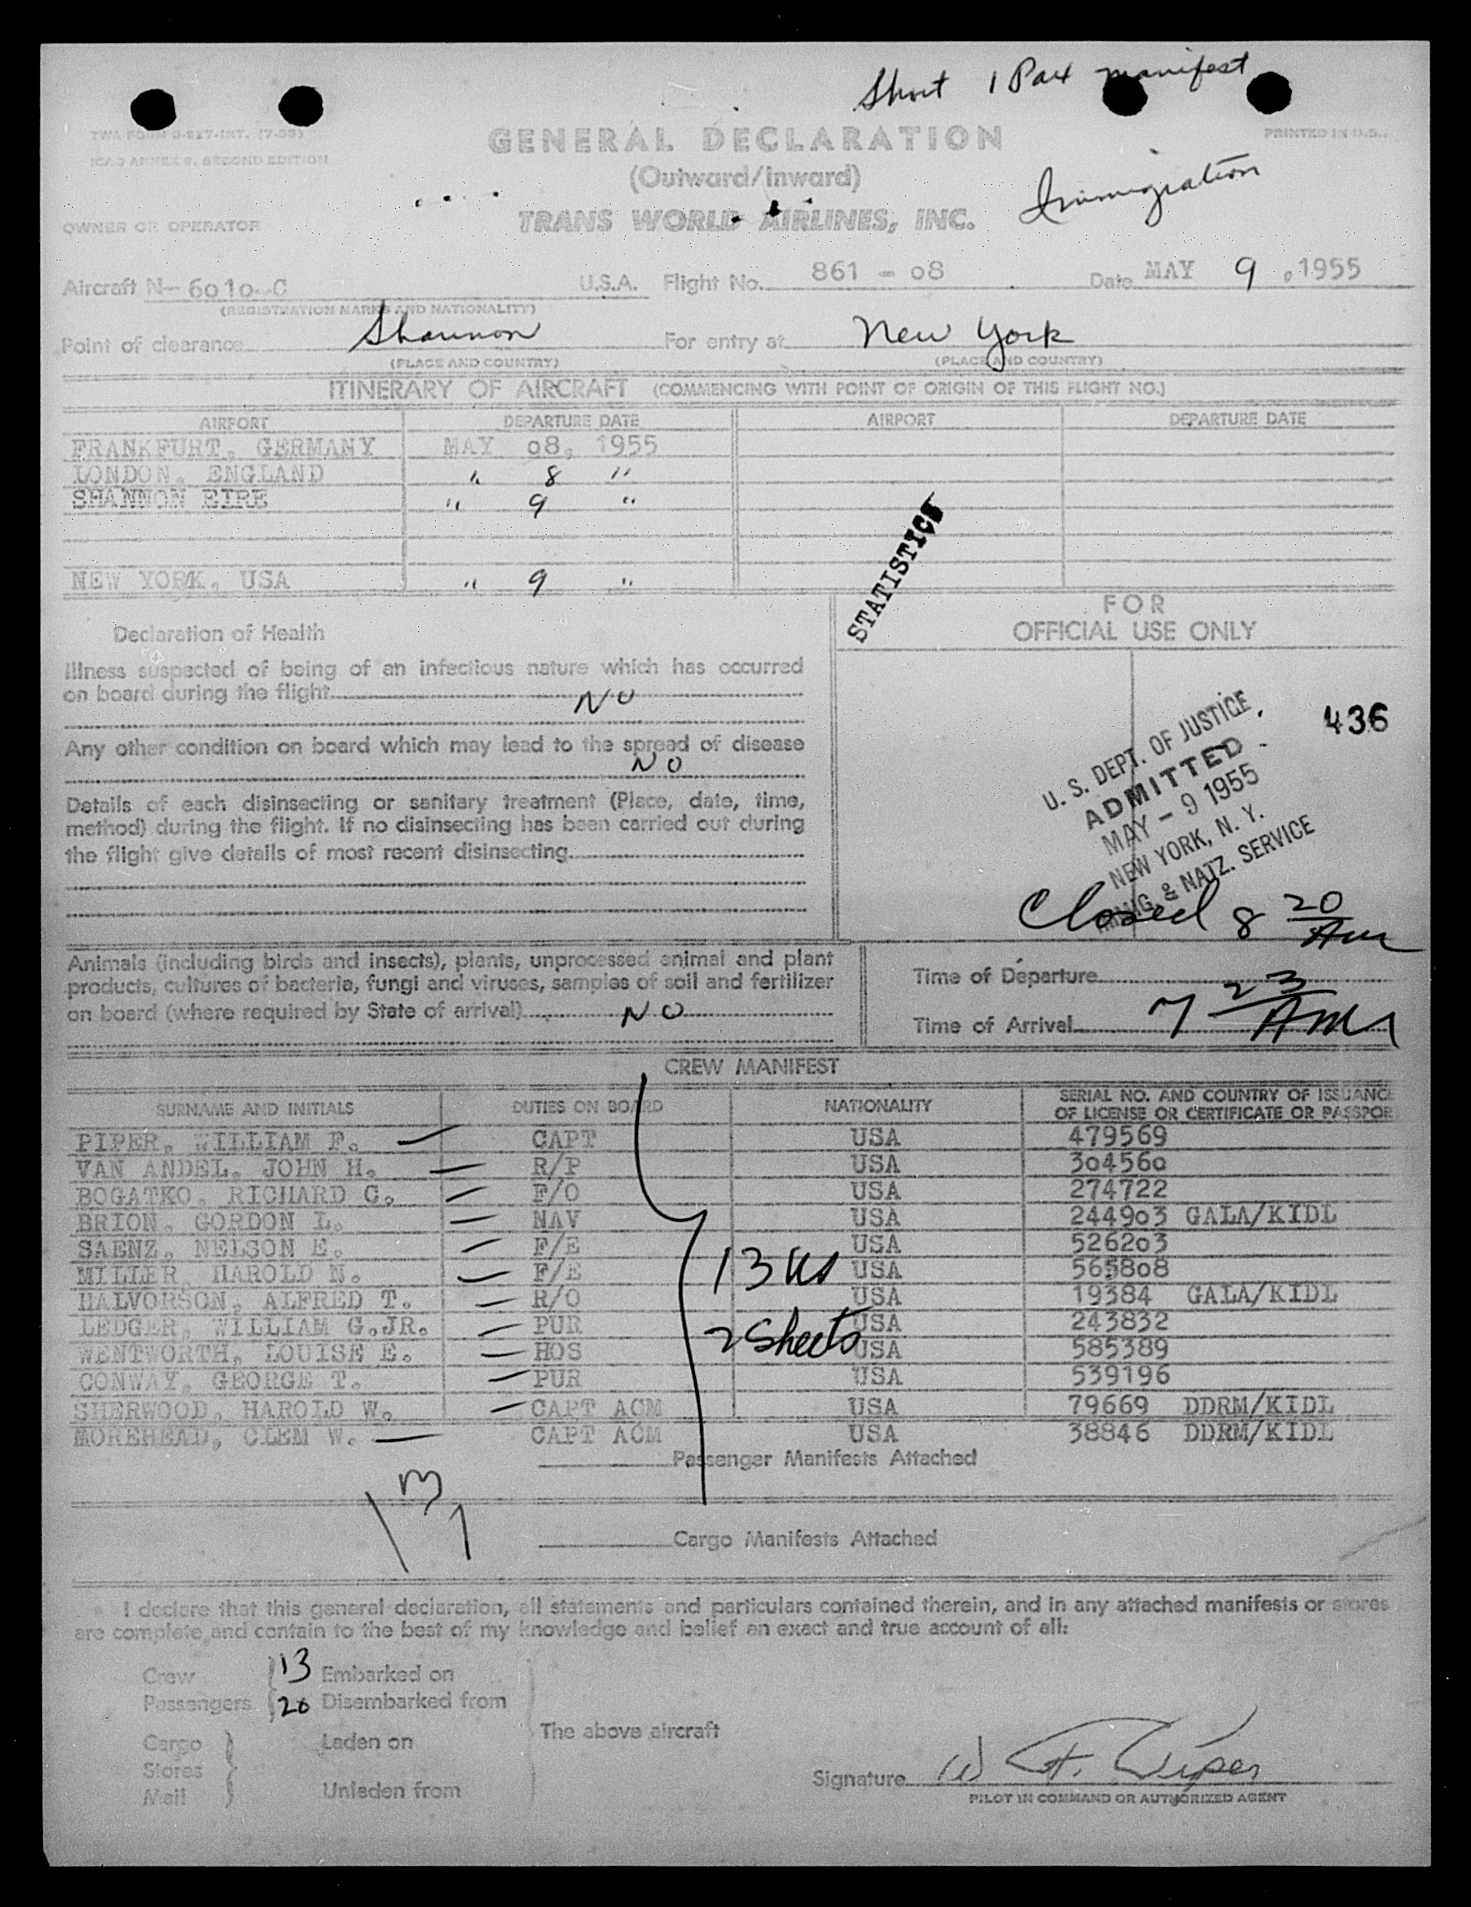 Short 1 Pax manifest
TWA FORM O-827-INT. (7-53)
GENERAL DECLARATION
PRINTED IN U.S.
ICAO ANNEX 9, SECOND EDITION
(Outward/Inward)
Immigration
OWNER OR OPERATOR
TRANS WORLD AIRLINES, INC.
Aircraft N-6010-C U.S.A. Flight No. 861 - 08 Date MAY 9, 1955
(REGISTRATION MARKS AND NATIONALITY)
Point of clearance Shannon For entry at New York
(PLACE AND COUNTRY) (PLACE AND COUNTRY)
ITINERARY OF AIRCRAFT (COMMENCING WITH POINT OF ORIGIN OF THIS FLIGHT NO.)
AIRPORT DEPARTURE DATE AIRPORT DEPARTURE DATE
FRANKFURT, GERMANY MAY 08, 1955
LONDON, ENGLAND " 8 "
SHANNON EIRE " 9 "
NEW YORK, USA " 9 "
STATISTICS
FOR
OFFICIAL USE ONLY
Declaration of Health
Illness suspected of being of an infectious nature which has occurred
on board during the flight NO
Any other condition on board which may lead to the spread of disease
NO
Details of each disinsecting or sanitary treatment (Place, date, time,
method) during the flight. If no disinsecting has been carried out during
the flight give details of most recent disinsecting
436
U. S. DEPT. OF JUSTICE
ADMITTED
MAY - 9 1955
NEW YORK, N. Y.
IMMIG. & NATZ. SERVICE
Closed 8 20 Am
Animals (including birds and insects), plants, unprocessed animal and plant
products, cultures of bacteria, fungi and viruses, samples of soil and fertilizer
on board (where required by State of arrival) NO
Time of Departure
Time of Arrival 7 23 Am
CREW MANIFEST
SURNAME AND INITIALS DUTIES ON BOARD NATIONALITY SERIAL NO. AND COUNTRY OF ISSUANC
OF LICENSE OR CERTIFICATE OR PASSPOR
PIPER, WILLIAM F. CAPT USA 479569
VAN ANDEL, JOHN H. R/P USA 304560
BOGATKO, RICHARD C. F/O USA 274722
BRION, GORDON L. NAV USA 244903 GALA/KIDL
SAENZ, NELSON E. F/E USA 526203
MILLER, HAROLD N. F/E USA 565808
HALVORSON, ALFRED T. R/O USA 19384 GALA/KIDL
LEDGER, WILLIAM G.JR. PUR USA 243832
WENTWORTH, LOUISE E. HOS USA 585389
CONWAY, GEORGE T. PUR USA 539196
SHERWOOD, HAROLD W. CAPT ACM USA 79669 DDRM/KIDL
MOREHEAD, CLEM W. CAPT ACM USA 38846 DDRM/KIDL
13 us
2 Sheets
Passenger Manifests Attached
Cargo Manifests Attached
I declare that this general declaration, all statements and particulars contained therein, and in any attached manifests or stores
are complete and contain to the best of my knowledge and belief an exact and true account of all:
Crew 13 Embarked on
Passengers 20 Disembarked from
Cargo Laden on
Stores
Mail Unladen from
The above aircraft
Signature W F. Piper
PILOT IN COMMAND OR AUTHORIZED AGENT